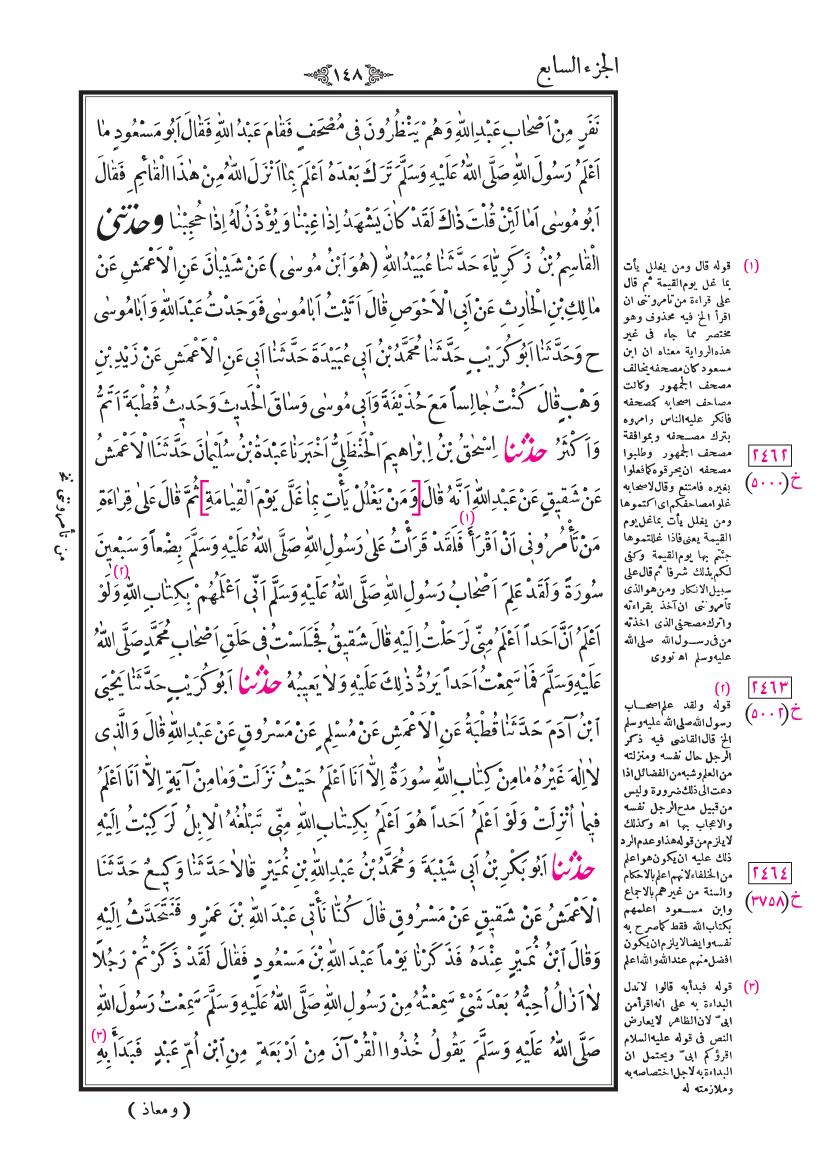 الجزء السابع
١٤٨
نَفَرٍ مِنْ اَصْحَابِ عَبْدِاللّٰهِ وَهُمْ يَنْظُرُونَ فِى مُصْحَفٍ فَقَامَ عَبْدُ اللّٰهِ فَقَالَ اَبُو مَسْعُودٍ مَا
اَعْلَمُ رَسُولَ اللّٰهِ صَلَّى اللّٰهُ عَلَيْهِ وَسَلَّمَ تَرَكَ بَعْدَهُ اَعْلَمَ بِمَا اَنْزَلَ اللّٰهُ مِنْ هٰذَا الْقَائِمِ فَقَالَ
اَبُو مُوسٰى اَمَا لَئِنْ قُلْتَ ذَاكَ لَقَدْ كَانَ يَشْهَدُ اِذَا غِبْنَا وَيُؤْذَنُ لَهُ اِذَا حُجِبْنَا وحَدَّثَنِى
الْقَاسِمُ بْنُ زَكَرِيَّاءَ حَدَّثَنَا عُبَيْدُ اللّٰهِ (هُوَ ابْنُ مُوسٰى) عَنْ شَيْبَانَ عَنِ الْاَعْمَشِ عَنْ
مَالِكِ بْنِ الْحَارِثِ عَنْ اَبِى الْاَحْوَصِ قَالَ اَتَيْتُ اَبَا مُوسٰى فَوَجَدْتُ عَبْدَ اللّٰهِ وَاَبَا مُوسٰى
ح وَحَدَّثَنَا اَبُو كُرَيْبٍ حَدَّثَنَا مُحَمَّدُ بْنُ اَبِى عُبَيْدَةَ حَدَّثَنَا اَبِى عَنِ الْاَعْمَشِ عَنْ زَيْدِ بْنِ
وَهْبٍ قَالَ كُنْتُ جَالِساً مَعَ حُذَيْفَةَ وَاَبِى مُوسٰى وَسَاقَ الْحَدِيثَ وَحَدِيثُ قُطْبَةَ اَتَمُّ
وَاَكْثَرُ حدّثنا اِسْحٰقُ بْنُ اِبْرَاهِيمَ الْحَنْظَلِىُّ اَخْبَرَنَا عَبْدَةُ بْنُ سُلَيْمَانَ حَدَّثَنَا الْاَعْمَشُ
عَنْ شَقِيقٍ عَنْ عَبْدِ اللّٰهِ اَنَّهُ قَالَ [وَمَنْ يَغْلُلْ يَأْتِ بِمَا غَلَّ يَوْمَ الْقِيَامَةِ] ثُمَّ قَالَ عَلٰى قِرَاءَةِ
مَنْ تَأْمُرُونِى اَنْ اَقْرَأَ (١) فَلَقَدْ قَرَأْتُ عَلٰى رَسُولِ اللّٰهِ صَلَّى اللّٰهُ عَلَيْهِ وَسَلَّمَ بِضْعاً وَسَبْعِينَ
سُورَةً وَلَقَدْ عَلِمَ اَصْحَابُ رَسُولِ اللّٰهِ صَلَّى اللّٰهُ عَلَيْهِ وَسَلَّمَ اَنِّى اَعْلَمُهُمْ بِكِتَابِ اللّٰهِ (٢) وَلَوْ
اَعْلَمُ اَنَّ اَحَداً اَعْلَمُ مِنِّى لَرَحَلْتُ اِلَيْهِ قَالَ شَقِيقٌ فَجَلَسْتُ فِى حَلَقِ اَصْحَابِ مُحَمَّدٍ صَلَّى اللّٰهُ
عَلَيْهِ وَسَلَّمَ فَمَا سَمِعْتُ اَحَداً يَرُدُّ ذٰلِكَ عَلَيْهِ وَلَا يَعِيبُهُ حدّثنا اَبُو كُرَيْبٍ حَدَّثَنَا يَحْيَى
ابْنُ آدَمَ حَدَّثَنَا قُطْبَةُ عَنِ الْاَعْمَشِ عَنْ مُسْلِمٍ عَنْ مَسْرُوقٍ عَنْ عَبْدِ اللّٰهِ قَالَ وَالَّذِى
لَا اِلٰهَ غَيْرُهُ مَا مِنْ كِتَابِ اللّٰهِ سُورَةٌ اِلَّا اَنَا اَعْلَمُ حَيْثُ نَزَلَتْ وَمَا مِنْ آيَةٍ اِلَّا اَنَا اَعْلَمُ
فِيمَا اُنْزِلَتْ وَلَوْ اَعْلَمُ اَحَداً هُوَ اَعْلَمُ بِكِتَابِ اللّٰهِ مِنِّى تَبْلُغُهُ الْاِبِلُ لَرَكِبْتُ اِلَيْهِ
حدّثنا اَبُو بَكْرِ بْنُ اَبِى شَيْبَةَ وَمُحَمَّدُ بْنُ عَبْدِ اللّٰهِ بْنِ نُمَيْرٍ قَالَا حَدَّثَنَا وَكِيعٌ حَدَّثَنَا
الْاَعْمَشُ عَنْ شَقِيقٍ عَنْ مَسْرُوقٍ قَالَ كُنَّا نَأْتِى عَبْدَ اللّٰهِ بْنَ عَمْرٍو فَنَتَحَدَّثُ اِلَيْهِ
وَقَالَ ابْنُ نُمَيْرٍ عِنْدَهُ فَذَكَرْنَا يَوْماً عَبْدَ اللّٰهِ بْنَ مَسْعُودٍ فَقَالَ لَقَدْ ذَكَرْتُمْ رَجُلًا
لَا اَزَالُ اُحِبُّهُ بَعْدَ شَىْءٍ سَمِعْتُهُ مِنْ رَسُولِ اللّٰهِ صَلَّى اللّٰهُ عَلَيْهِ وَسَلَّمَ سَمِعْتُ رَسُولَ اللّٰهِ
صَلَّى اللّٰهُ عَلَيْهِ وَسَلَّمَ يَقُولُ خُذُوا الْقُرْآنَ مِنْ اَرْبَعَةٍ مِنِ ابْنِ اُمِّ عَبْدٍ فَبَدَأَ بِهِ (٣)
(ومعاذ)
(١) قوله قال ومن يغلل يأت
بما غل يوم القيمة ثم قال
على قراءة من تأمروننى ان
اقرأ الخ فيه محذوف وهو
مختصر مما جاء فى غير
هذه الرواية معناه ان ابن
مسعود كان مصحفه يخالف
مصحف الجمهور وكانت
مصاحف اصحابه كمصحفه
فانكر عليه الناس وامروه
بترك مصحفه وبموافقة
مصحف الجمهور وطلبوا
مصحفه ان يحرقوه كما فعلوا
بغيره فامتنع وقال لاصحابه
غلوا مصاحفكم اى اكتموها
ومن يغلل يأت بما غل يوم
القيمة يعنى فاذا غللتموها
جئتم بها يوم القيمة وكفى
لكم بذلك شرفا ثم قال على
سبيل الانكار ومن هو الذى
تأمروننى ان آخذ بقراءته
واترك مصحفى الذى اخذته
من فى رسول الله صلى الله
عليه وسلم اه نووى
(٢)
قوله ولقد علم اصحاب
رسول الله صلى الله عليه وسلم
الخ قال القاضى فيه ذكر
الرجل حال نفسه ومنزلته
من العلم وشبه من الفضائل اذا
دعت الى ذلك ضرورة وليس
من قبيل مدح الرجل نفسه
والاعجاب بها اه وكذلك
لا يلزم من قوله هذا وعدم الرد
ذلك عليه ان يكون هو اعلم
من الخلفاء لانهم اعلم بالاحكام
والسنة من غيرهم بالاجماع
وابن مسعود اعلمهم
بكتاب الله فقط كما صرح به
نفسه وايضا لا يلزم ان يكون
افضل منهم عند الله والله اعلم
(٣) قوله فبدأ به قالوا لا تدل
البداءة به على انه اقرأ من
ابىّ لان الظاهر لا يعارض
النص فى قوله عليه السلام
اقرؤكم ابىّ ويحتمل ان
البداءة به لاجل اختصاصه به
وملازمته له
٢٤٦٢
خ (٥٠٠٠)
٢٤٦٣
خ (٥٠٠٢)
٢٤٦٤
خ (٣٧٥٨)
من تأمروننى نخ